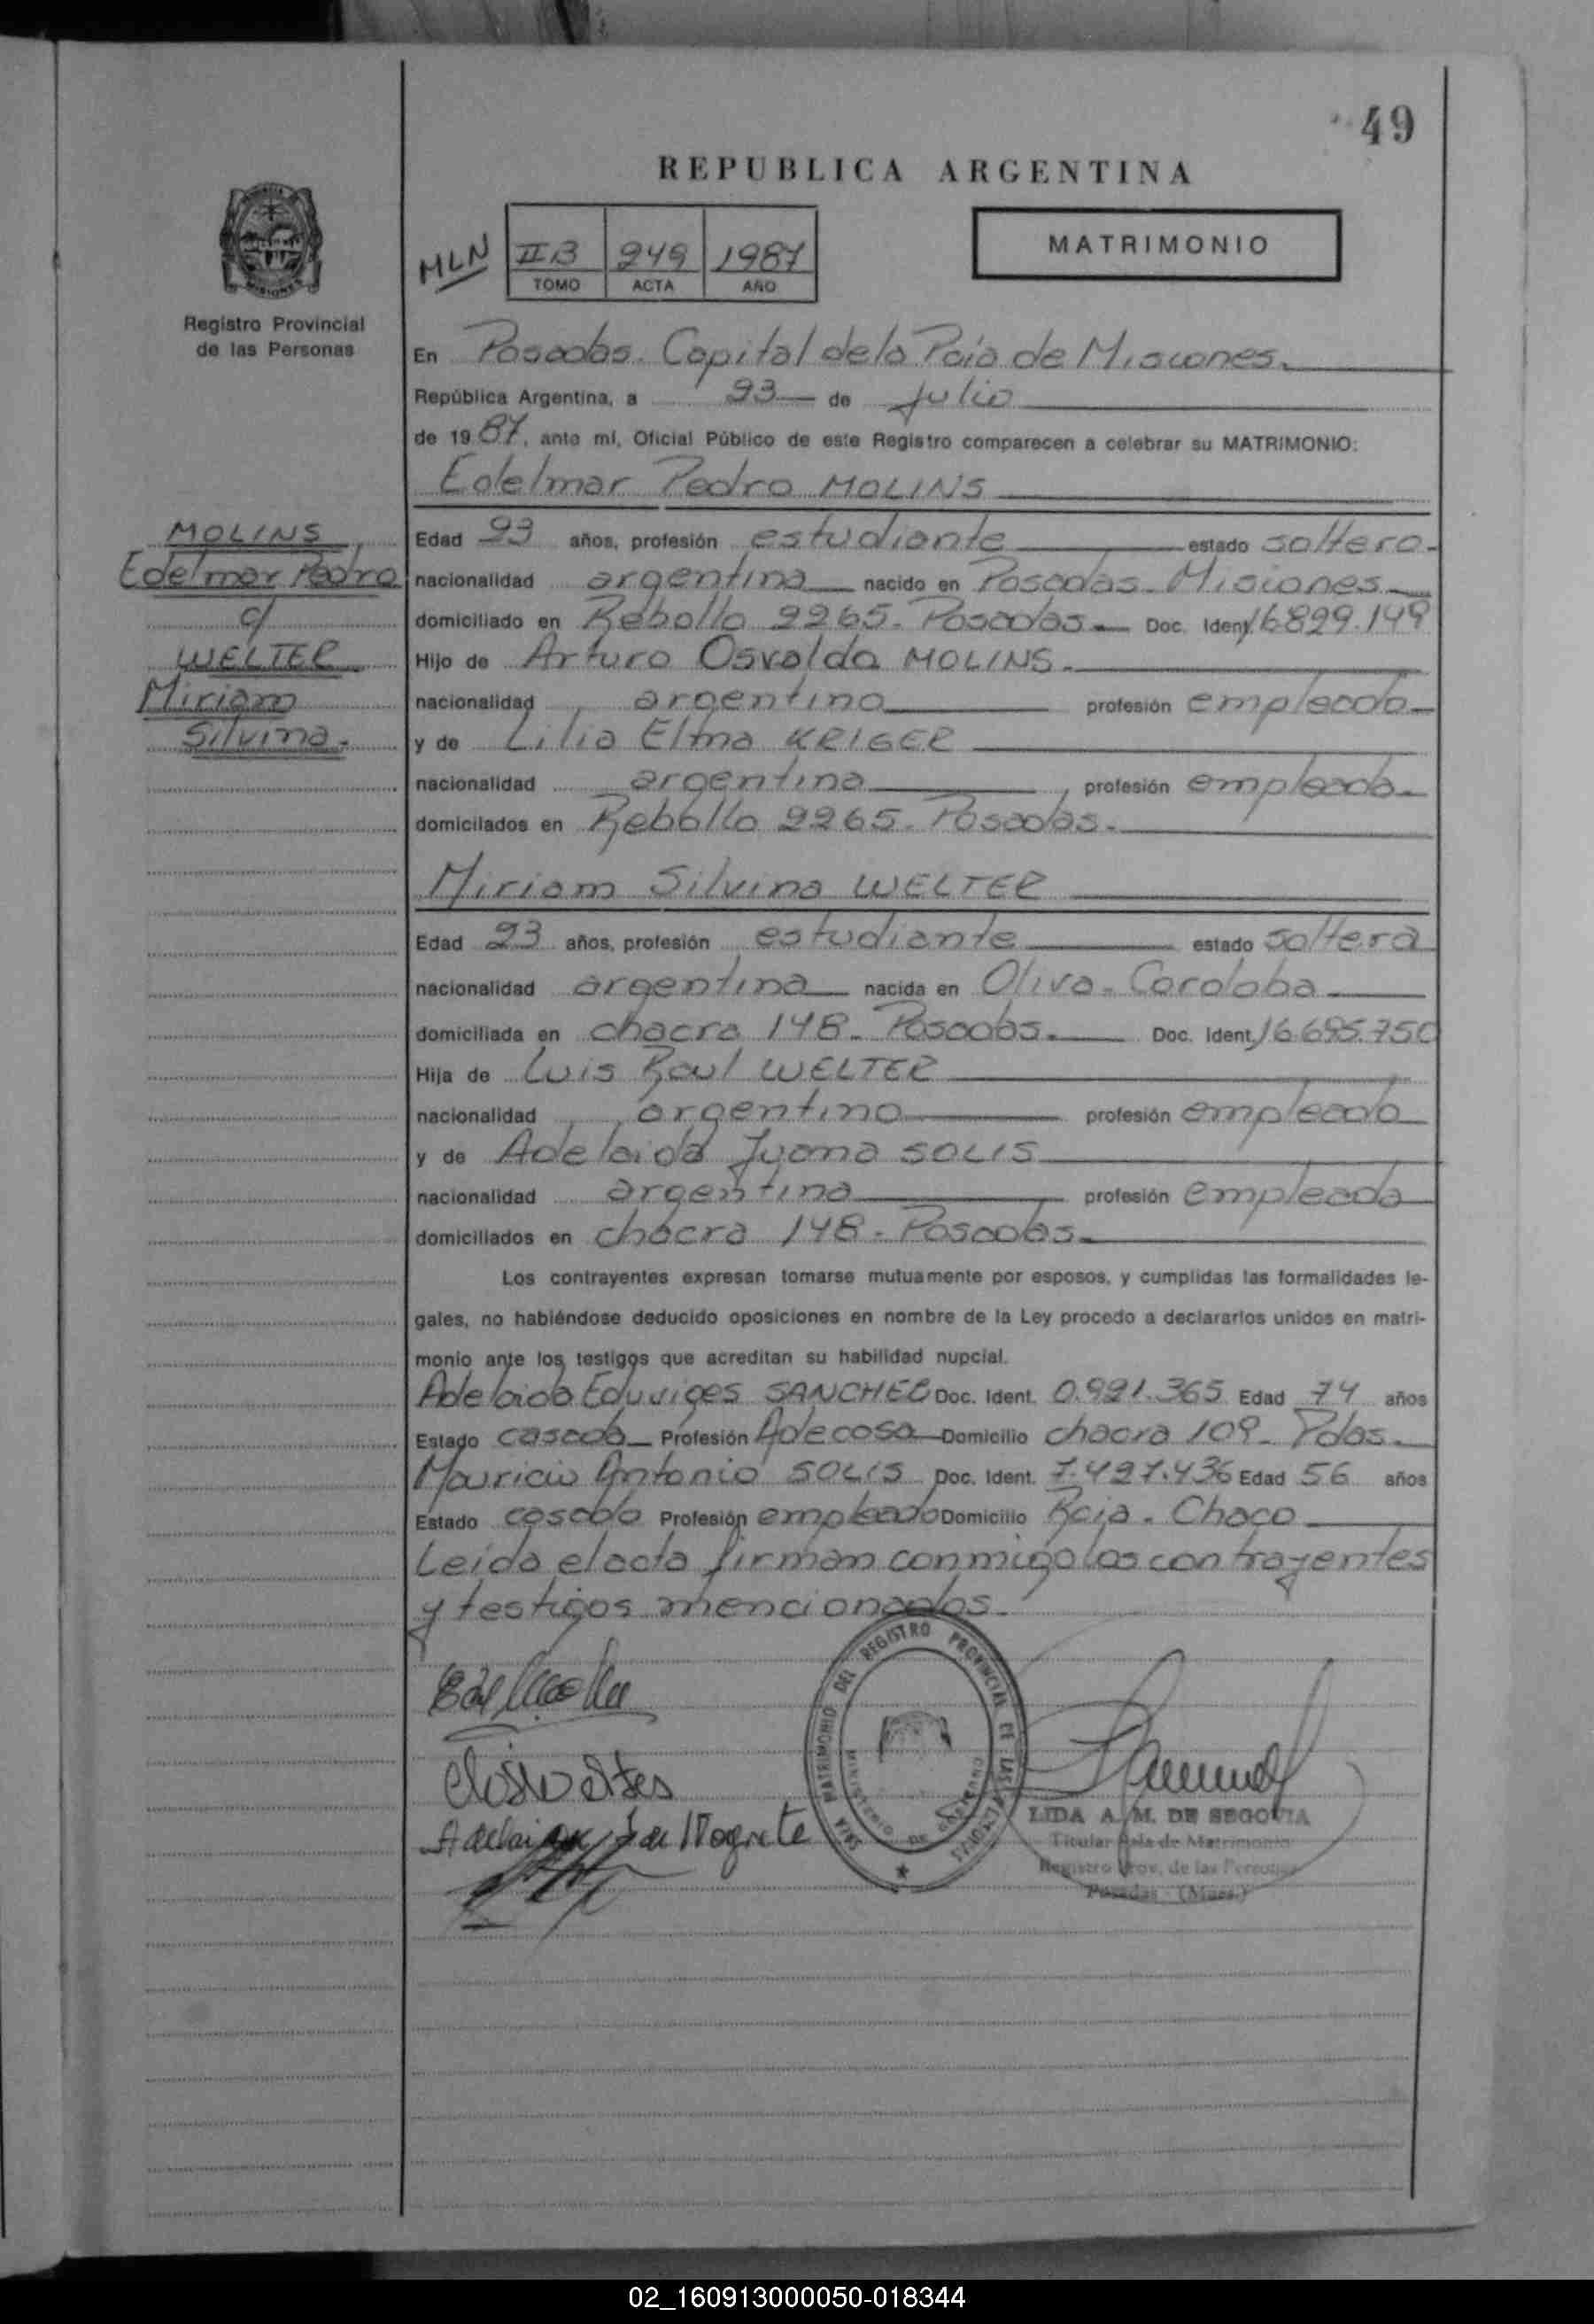 49
REPUBLICA ARGENTINA
MLN
II B 249 1987
TOMO ACTA AÑO
MATRIMONIO
Registro Provincial
de las Personas
En Posadas. Capital de la Pcia de Misiones.
República Argentina, a 23 de Julio
de 1987, ante mí, Oficial Público de este Registro comparecen a celebrar su MATRIMONIO:
Edelmar Pedro MOLINS
MOLINS
Edelmar Pedro
c/
WELTER
Miriam
Silvina.-
Edad 23 años, profesión estudiante estado soltero.-
nacionalidad argentina nacido en Posadas - Misiones.-
domiciliado en Rebollo 2265. Posadas.- Doc. Ident. 16.829.149
Hijo de Arturo Osvaldo MOLINS.-
nacionalidad argentino profesión empleado
y de Lilia Elma KRIGER
nacionalidad argentina profesión empleada.
domicilados en Rebollo 2265. Posadas.
Miriam Silvina WELTER
Edad 23 años, profesión estudiante estado soltera
nacionalidad argentina nacida en Oliva - Cordoba
domiciliada en chacra 148 - Posadas. Doc. Ident. 16.695.750
Hija de Luis Raul WELTER
nacionalidad argentino profesión empleado
y de Adelaida Juana SOLIS
nacionalidad argentina profesión empleada
domiciliados en chacra 148 - Posadas.
Los contrayentes expresan tomarse mutuamente por esposos, y cumplidas las formalidades le-
gales, no habiéndose deducido oposiciones en nombre de la Ley procedo a declararlos unidos en matri-
monio ante los testigos que acreditan su habilidad nupcial.
Adelaida Eduviges SANCHEZ Doc. Ident. 0.921.365 Edad 74 años
Estado casada Profesión Adecasa Domicilio chacra 109 - Pdas.
Mauricio Antonio SOLIS Doc. Ident. 7.427.436 Edad 56 años
Estado casado Profesión empleado Domicilio Rcia. Chaco
Leida el acta firman conmigo los contrayentes
y testigos mencionados.
MATRIMONIO DEL REGISTRO PROVINCIAL DE LAS
MINISTERIO DE GOBIERNO
LIDA A. M. DE SEGOVIA
Titular Sala de Matrimonio
Registro Prov. de las Personas
Posadas - (Mnes.)
02_160913000050-018344